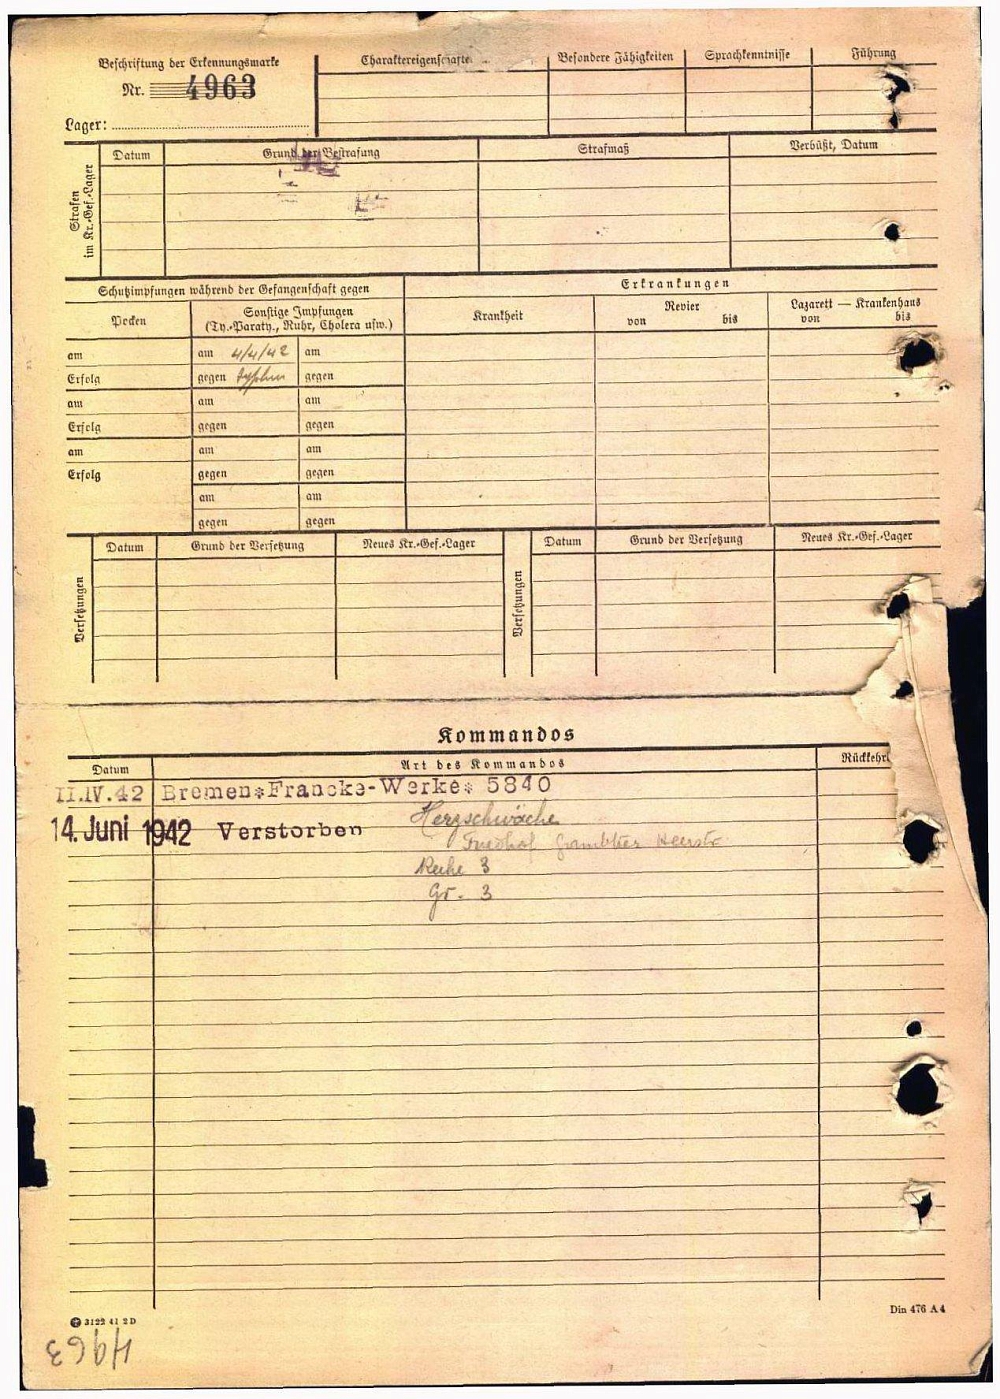 Beschriftung der Erkennungsmarke
Nr. 4963
Lager:
Charaktereigenschafte
Besondere Fähigkeiten
Sprachkenntnisse
Führung
Strafen
im Kr.-Gef.-Lager
Datum
Grund der Bestrafung
Strafmaß
Verbüßt, Datum
Schutzimpfungen während der Gefangenschaft gegen
Erkrankungen
Pocken
Sonstige Impfungen
(Ty.-Paraty., Ruhr, Cholera usw.)
Krankheit
Revier
von bis
Lazarett — Krankenhaus
von bis
am am 4/4/42 am
Erfolg gegen Typhus gegen
am am am
Erfolg gegen gegen
am am am
Erfolg gegen gegen
am am
gegen gegen
Versetzungen
Datum
Grund der Versetzung
Neues Kr.-Gef.-Lager
Versetzungen
Datum
Grund der Versetzung
Neues Kr.-Gef.-Lager
Kommandos
Datum
Art des Kommandos
Rückkehr
11.IV.42 Bremen*Francke-Werke* 5840
14. Juni 1942 Verstorben Herzschwäche
Friedhof Heerstr
Reihe 3
Gr. 3
3122 41 2 D
Din 476 A 4
4963